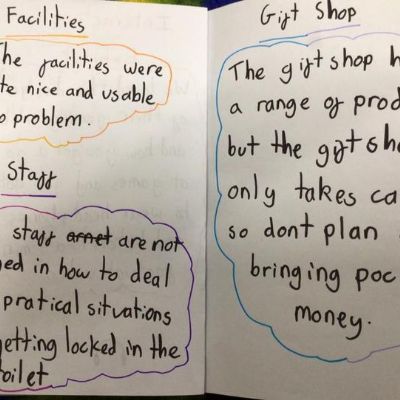 Facilities
The facilities were
te nice and usable
o problem.
Staff
staff arnet are not
ed in how to deal
pratical situations
getting locked in the
toilet
Gift Shop
The gift shop h
a range of prod
but the gift sho
only takes ca
so dont plan
bringing poc
money.